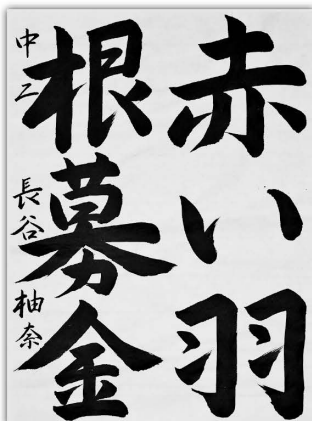 赤い羽
根募金
中二 長谷 柚奈